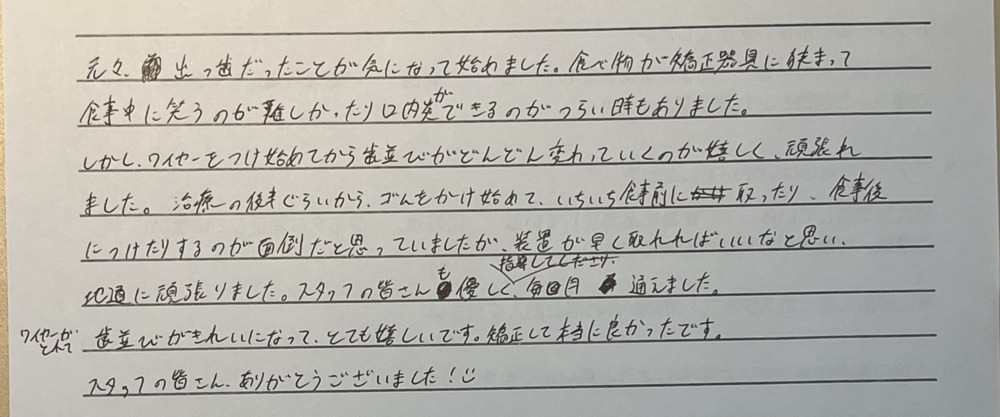 元々、出っ歯だったことが気になって始めました。食べ物が矯正器具に挟まって
食事中に笑うのが難しかったり口内炎ができるのがつらい時もありました。
しかし、ワイヤーをつけ始めてから歯並びがどんどん変わっていくのが嬉しく、頑張れ
ました。治療の後半ぐらいから、ゴムをかけ始めて、いちいち食事前に取ったり、食事後
につけたりするのが面倒だと思っていましたが、装置が早く取れればいいなと思い、
地道に頑張りました。スタッフの皆さんも優しく指導してくださり、毎月通えました。
ワイヤーがとれて歯並びがきれいになって、とても嬉しいです。矯正して本当に良かったです。
スタッフの皆さん、ありがとうございました!